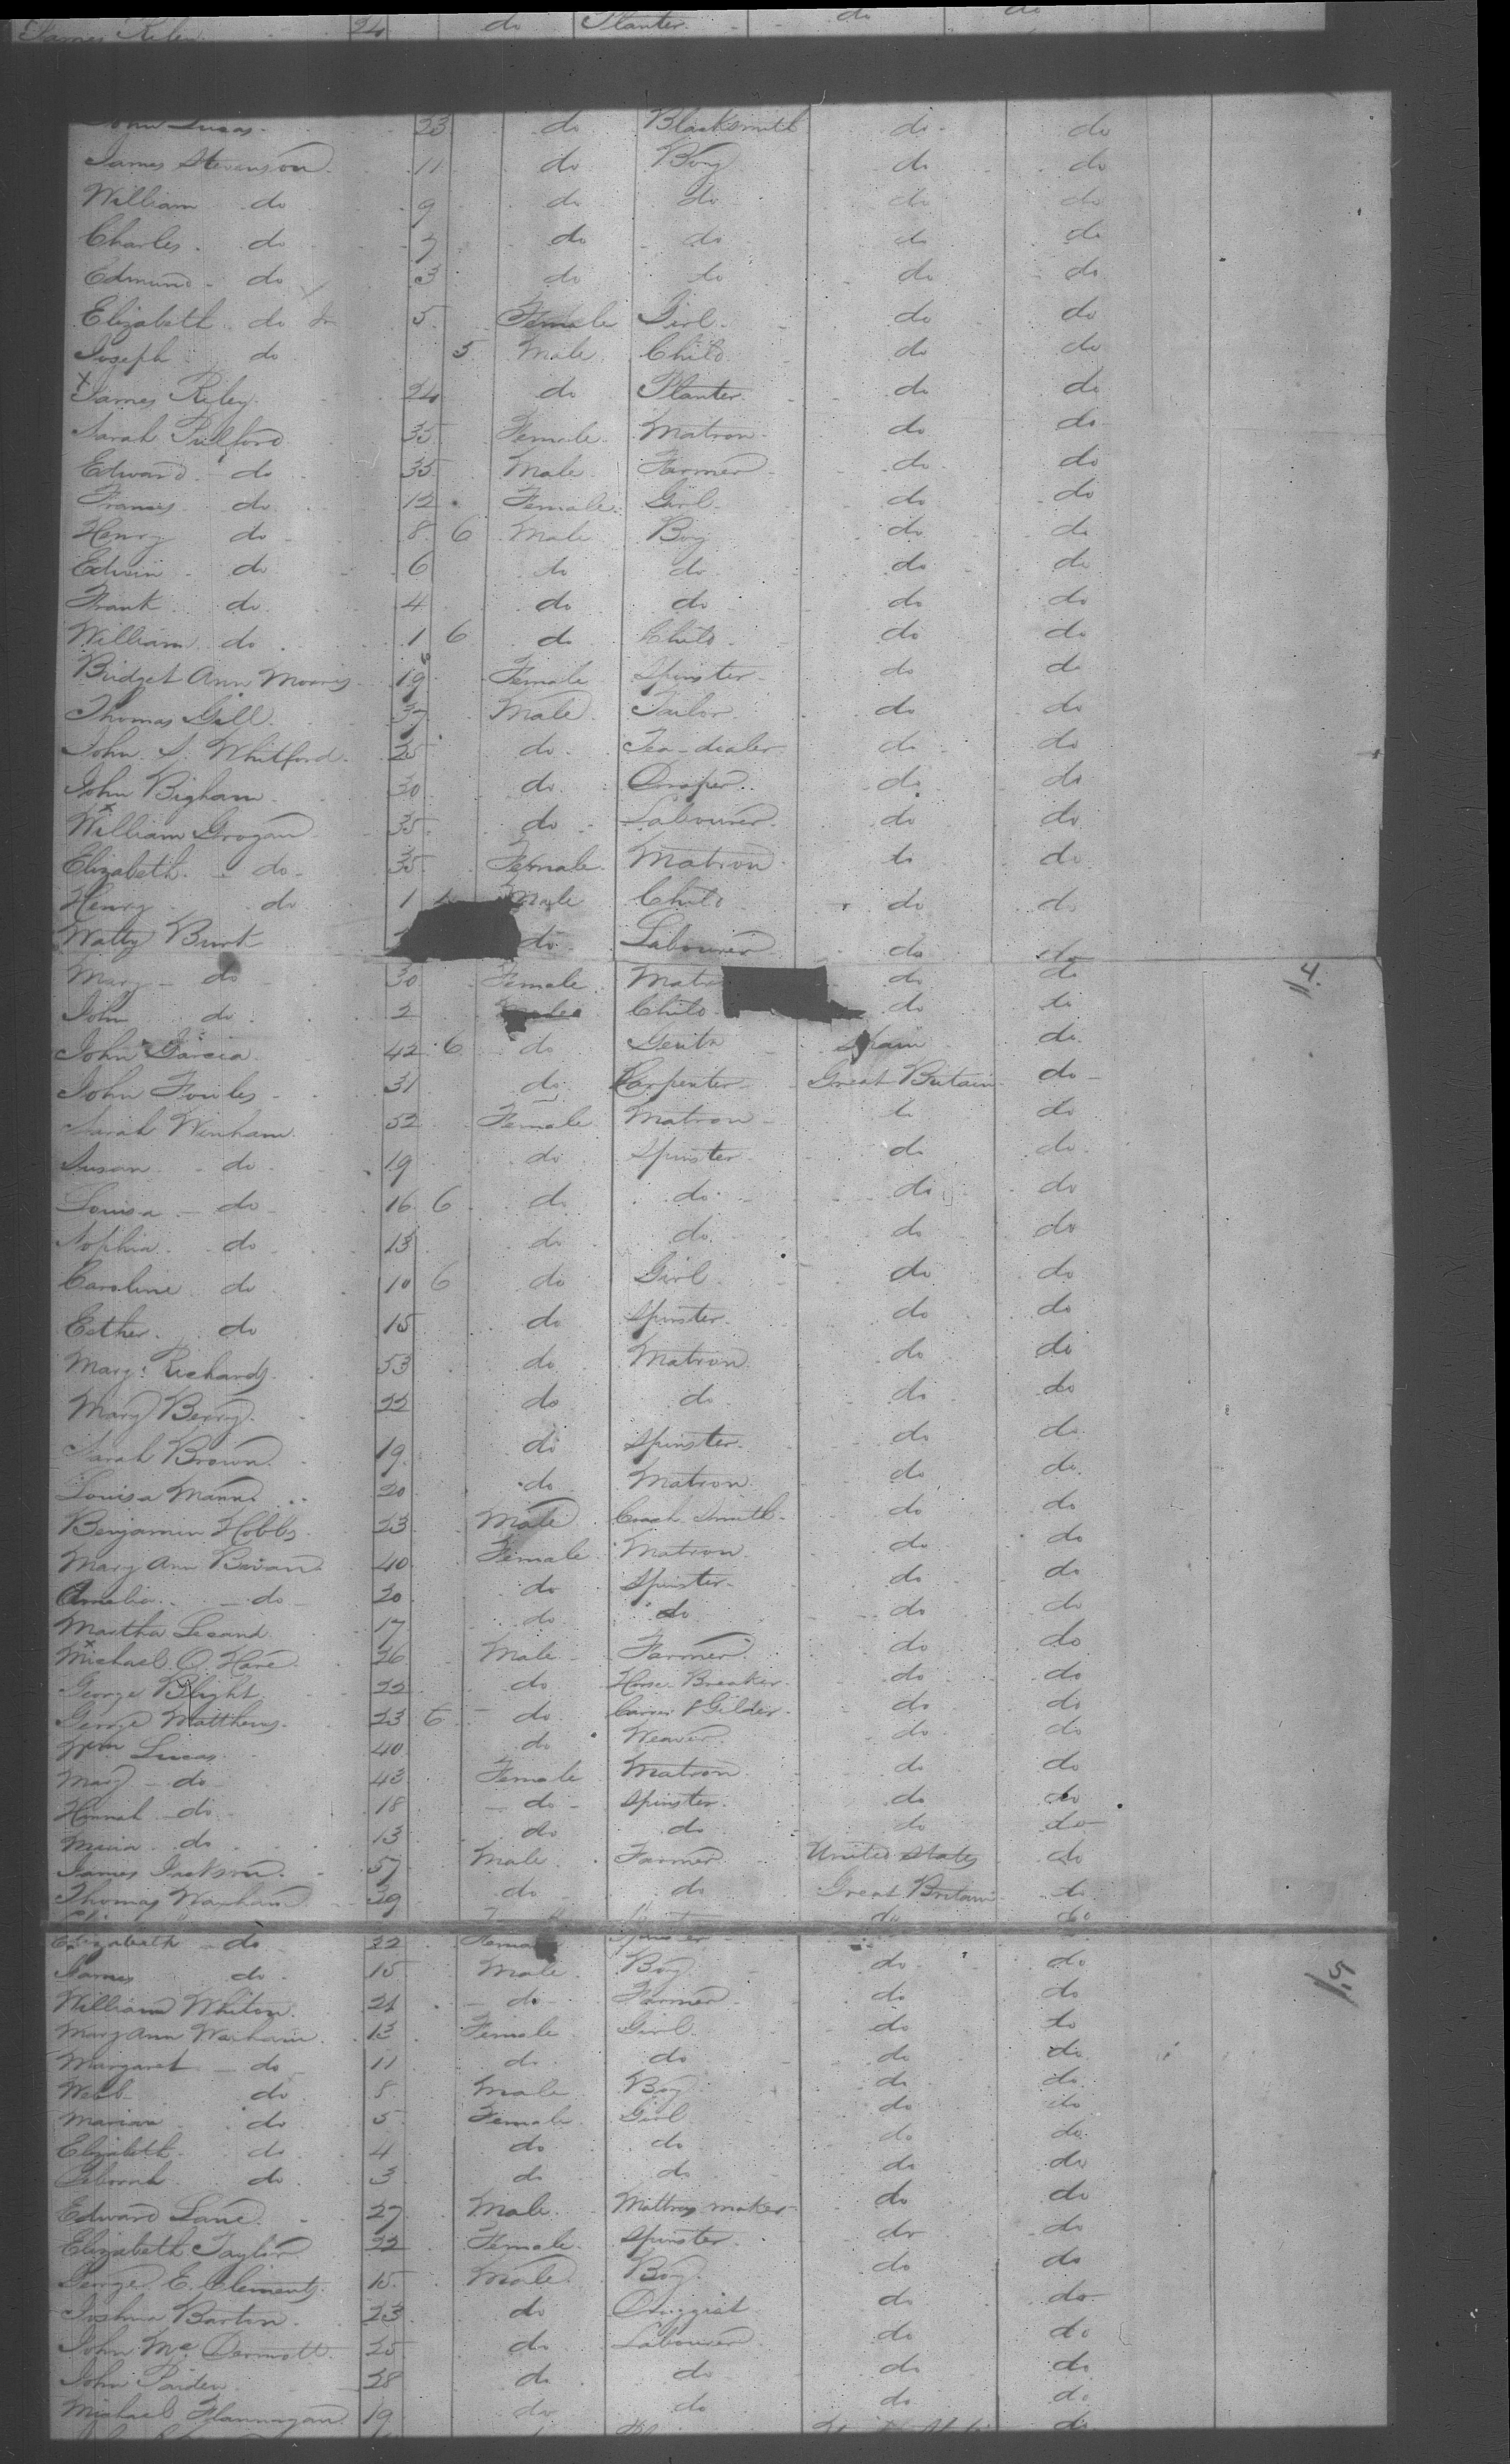 James Riley 24 do Planter do do
John Lucas 23 do Blacksmith do do
James Stevenson 11 do Boy do do
William do 9 do do do do
Charles do 7 do do do do
Edmund do 3 do do do do
Elizabeth do 5 Female Girl do do
Joseph do 5 Male Child do do
x James Riley 24 do Planter do do
Sarah Pulford 35 Female Matron do do
Edward do 35 Male Farmer do do
Frances do 12 Female Girl do do
Henry do 8 6 Male Boy do do
Edwin do 6 do do do do
Frank do 4 do do do do
William do 1 6 do Child do do
Bridget Ann Morris 19 Female Spinster do do
Thomas Gill 37 Male Tailor do do
John S. Whitford 25 do Tea-dealer do do
John Bigham 30 do Draper do do
x William Grogan 35 do Labourer do do
Elizabeth do 35 Female Matron do do
Henry do 1 Male Child do do
Watty Burk do Labourer do do
Mary do 30 Female Matr do do
John do 2 Child do do 4.
John Garcia 42 6 do Gentn Spain do
John Fowles 31 do Carpenter Great Britain do
Sarah Winham 52 Female Matron do do
Susan do 19 do Spinster do do
Louisa do 16 6 do do do do
Sophia do 13 do do do do
Caroline do 10 6 do Girl do do
Esther do 15 do Spinster do do
Mary Richards 53 do Matron do do
Mary Berry 22 do do do do
Sarah Brown 19 do Spinster do do
Louisa Mann 20 do Matron do do
Benjamin Hobbs 23 Male Coach Smith do do
Mary Ann Bavan 40 Female Matron do do
Amelia do 20 do Spinster do do
Martha 17 do do do do
x Michael O Hare 26 Male Farmer do do
George Blight 22 do Horse Breaker do do
George Matthews 23 6 do Carver & Gilder do do
Wm Lucas 40 do Weaver do do
Mary do 43 Female Matron do do
Hannah do 18 do Spinster do do
do 13 do do do do
James Jackson 57 Male Farmer United States do
Thomas Warham 39 do do Great Britain do
Elizabeth do 32 Female do do
James do 15 Male Boy do do
William Whiton 21 do Farmer do do 5.
Mary Ann Warham 13 Female Girl do do
Margaret do 11 do do do do
Webb do 8 Male Boy do do
Marian do 5 Female Girl do do
Elizabeth do 4 do do do do
Deborah do 3 do do do do
Edward Lane 27 Male Mattrass maker do do
Elizabeth Taylor 22 Female Spinster do do
George E. Clements 15 Male Boy do do
Joshua Barton 23 do Druggist do do
John Mc Dermott 25 do Labourer do do
John Parden 28 do do do do
Michael Flannigan 19 do do do do